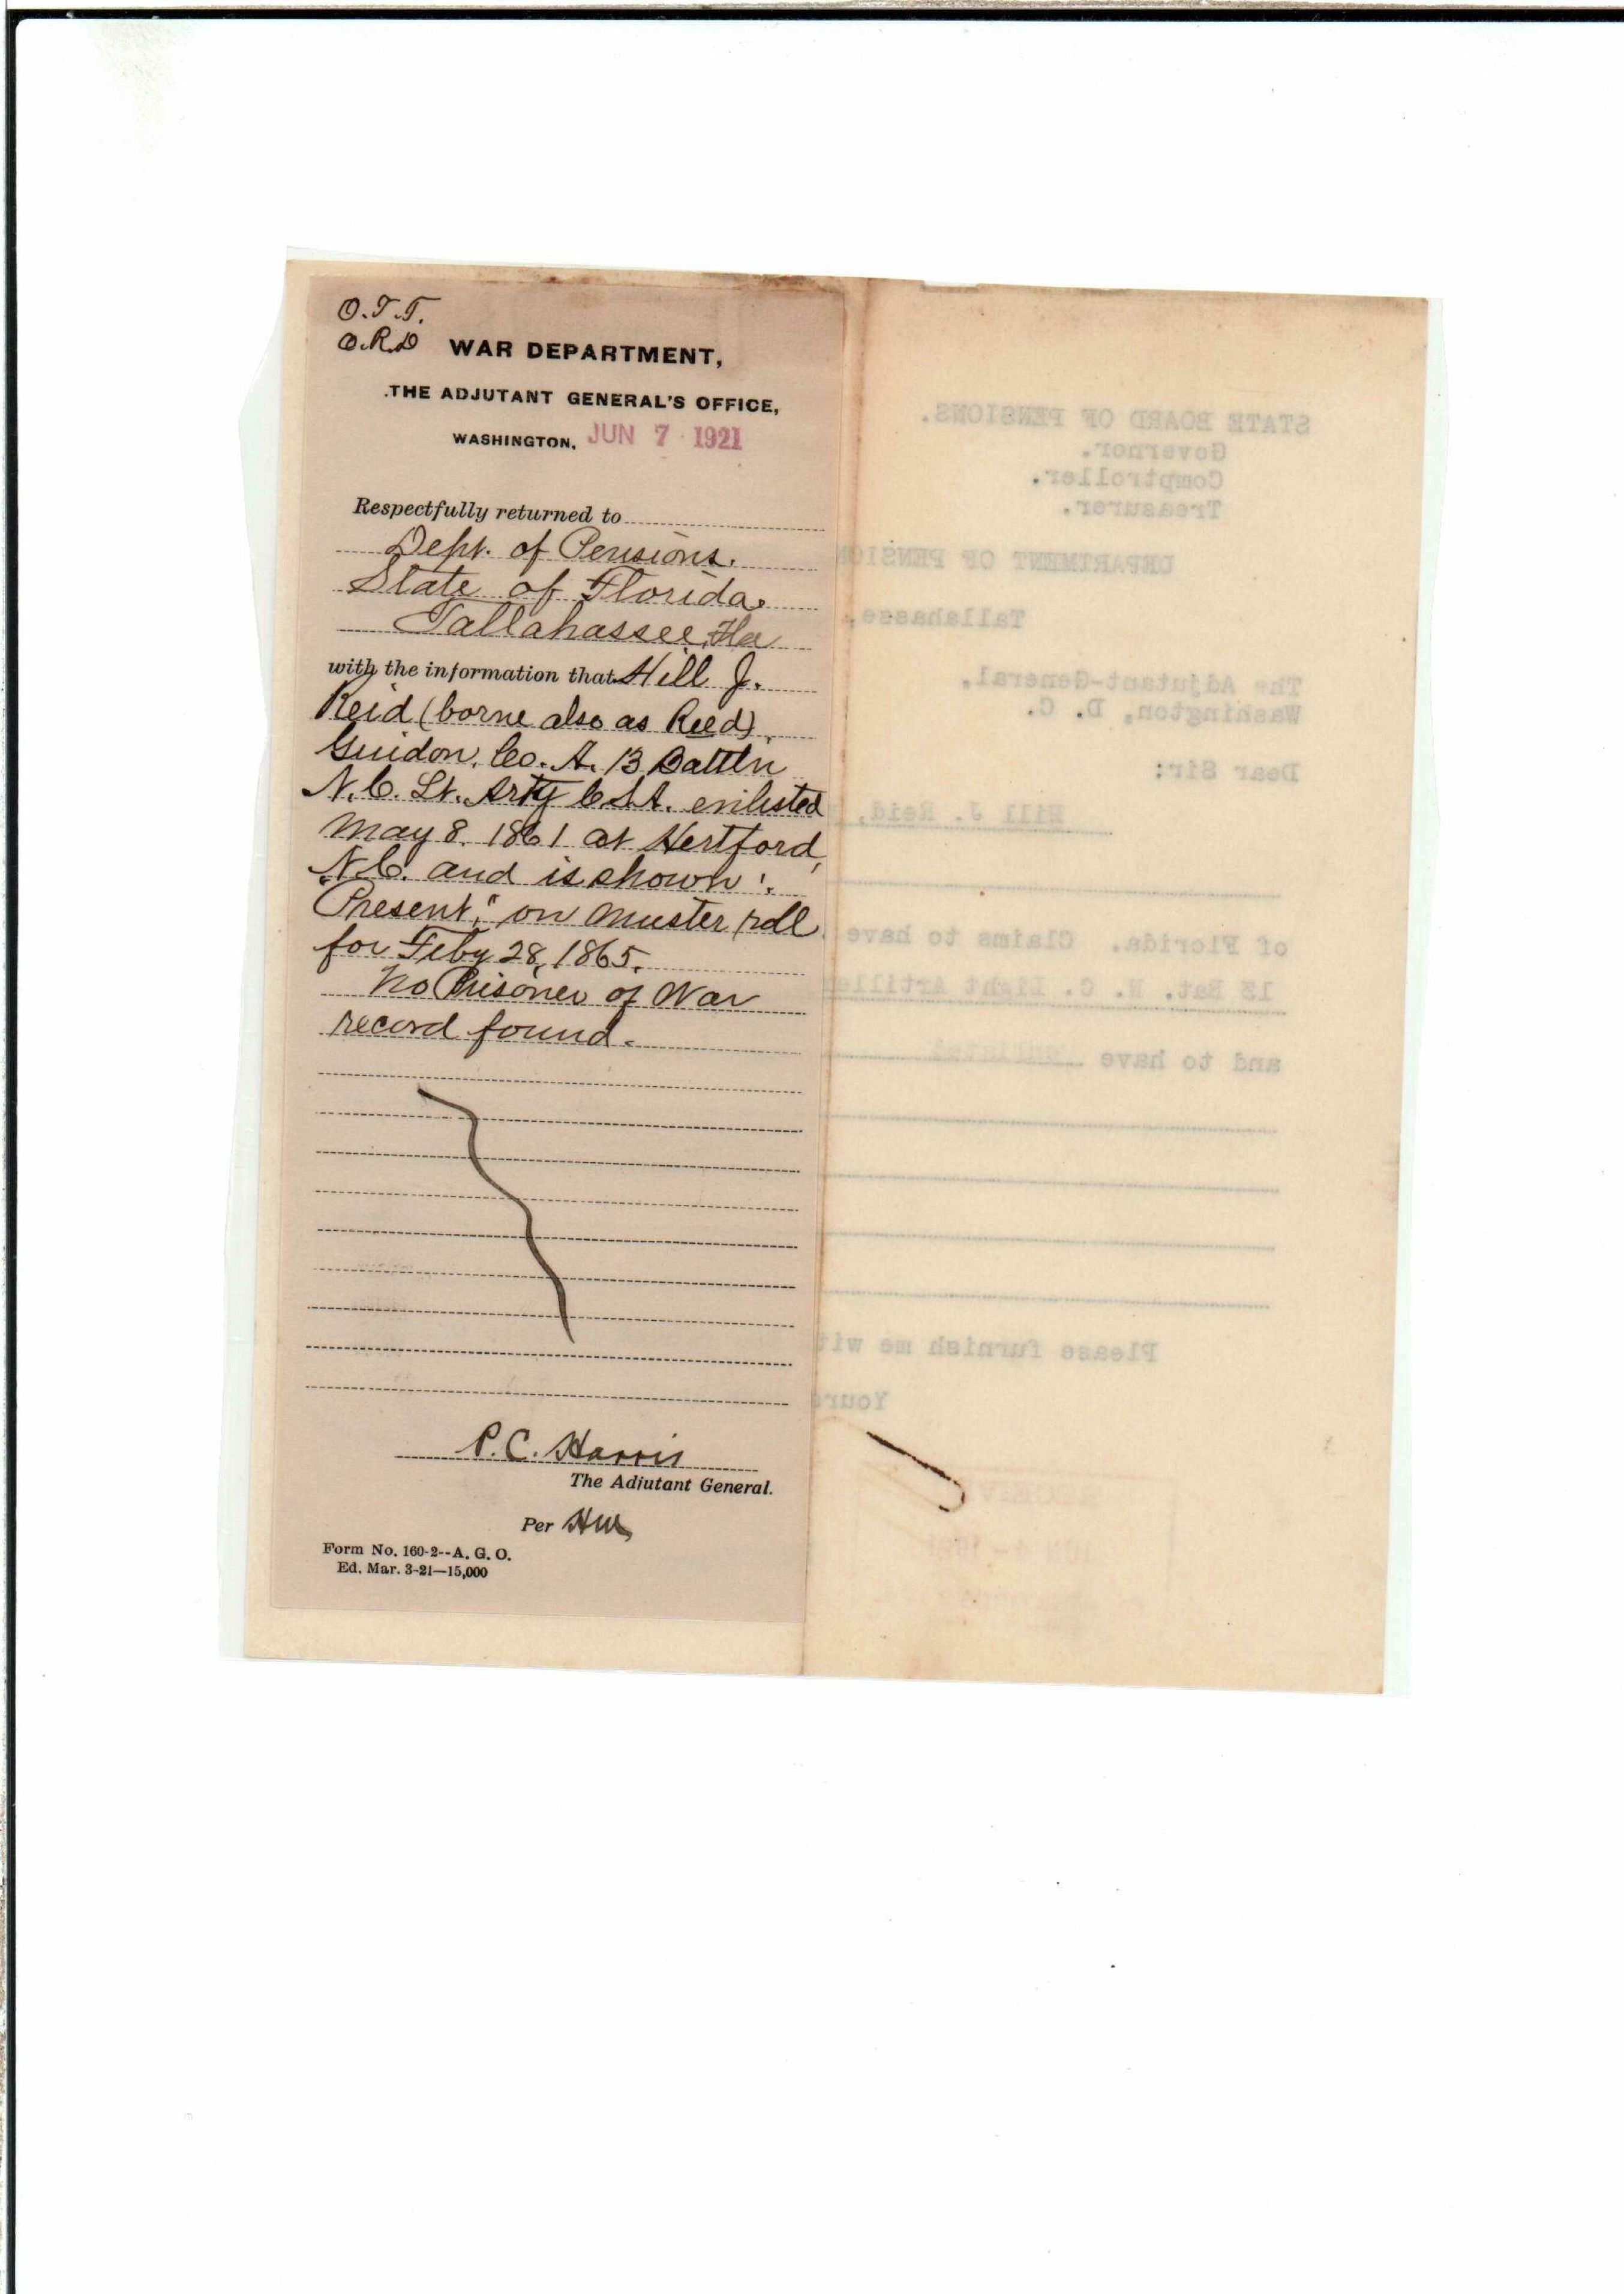 O.T.T.
O.R.D WAR DEPARTMENT,
THE ADJUTANT GENERAL'S OFFICE,
WASHINGTON, JUN 7 1921
Respectfully returned to
Dept. of Pensions.
State of Florida.
Tallahassee, Fla
with the information that Hill J.
Reid (borne also as Reed),
Guidon, Co. A. 13 Battln
N.C. Lt. Arty C.S.A. enlisted
May 8, 1861 at Hertford,
N.C. and is shown "
Present," on muster roll
for Feby 28, 1865.
No Prisoner of War
record found.
P.C. Harris
The Adjutant General.
Per
Form No. 160-2--A. G. O.
Ed. Mar. 3-21—15,000
STATE BOARD OF PENSIONS.
Governor.
Comptroller.
Treasurer.
DEPARTMENT OF PENSION
Tallahassee,
The Adjutant-General,
Washington, D. C.
Dear Sir:
Hill J. Reid,
of Florida. Claims to have
13 Bat. N. C. Light Artiller
and to have enlisted
Please furnish me wit
Yours